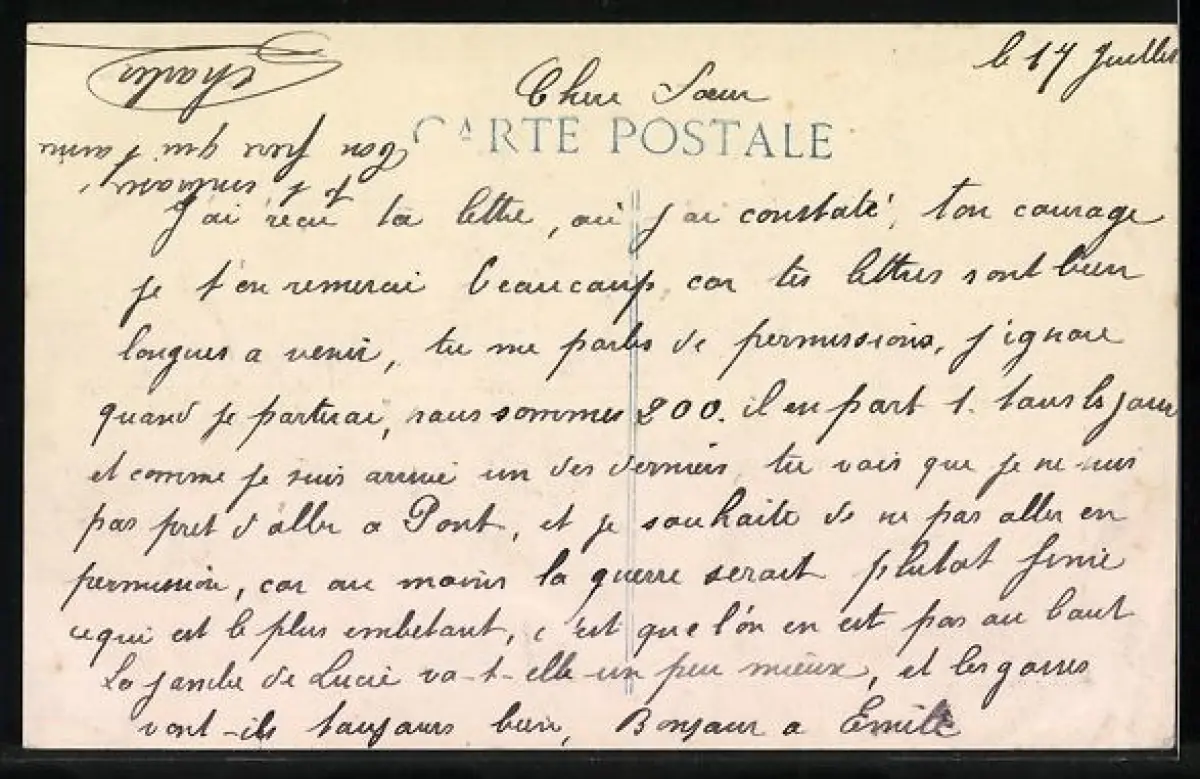 le 17 Juillet
Chere Soeur
CARTE POSTALE
J'ai recu ta lettre, ou j'ai constaté, ton courage
je t'en remerci beaucoup car tes lettres sont bien
longues a venir, tu me parles de permissions, j'ignore
quand je partirai, nous sommes 200. il en part 1. tous les jours
et comme je suis arrivé un des derniers, tu vois que je ne suis
pas pret d'aller a Pont, et je souhaite de ne pas aller en
permission, car au moins la guerre serait plutot finie
ce qui est le plus embetant, c'est que l'on en est pas au bout
La jambe de Lucie va-t-elle un peu mieux, et les gosses
vont-ils toujours bien, Bonjour a Emile
Ton frere qui t'aime
Charles